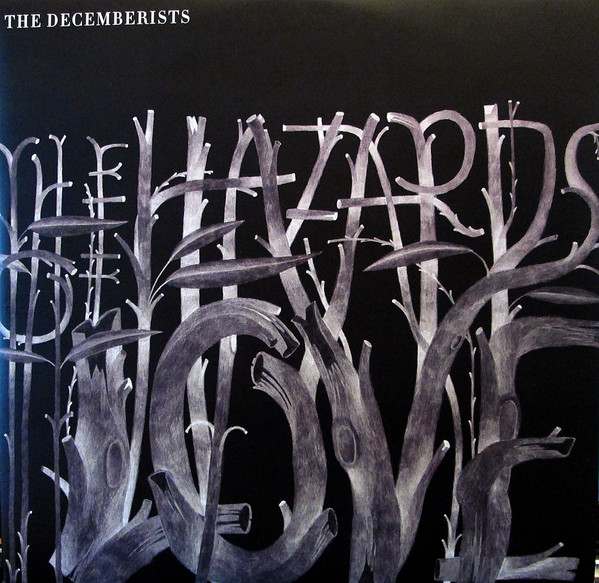 THE DECEMBERISTS
THE HAZARDS
OF
LOVE